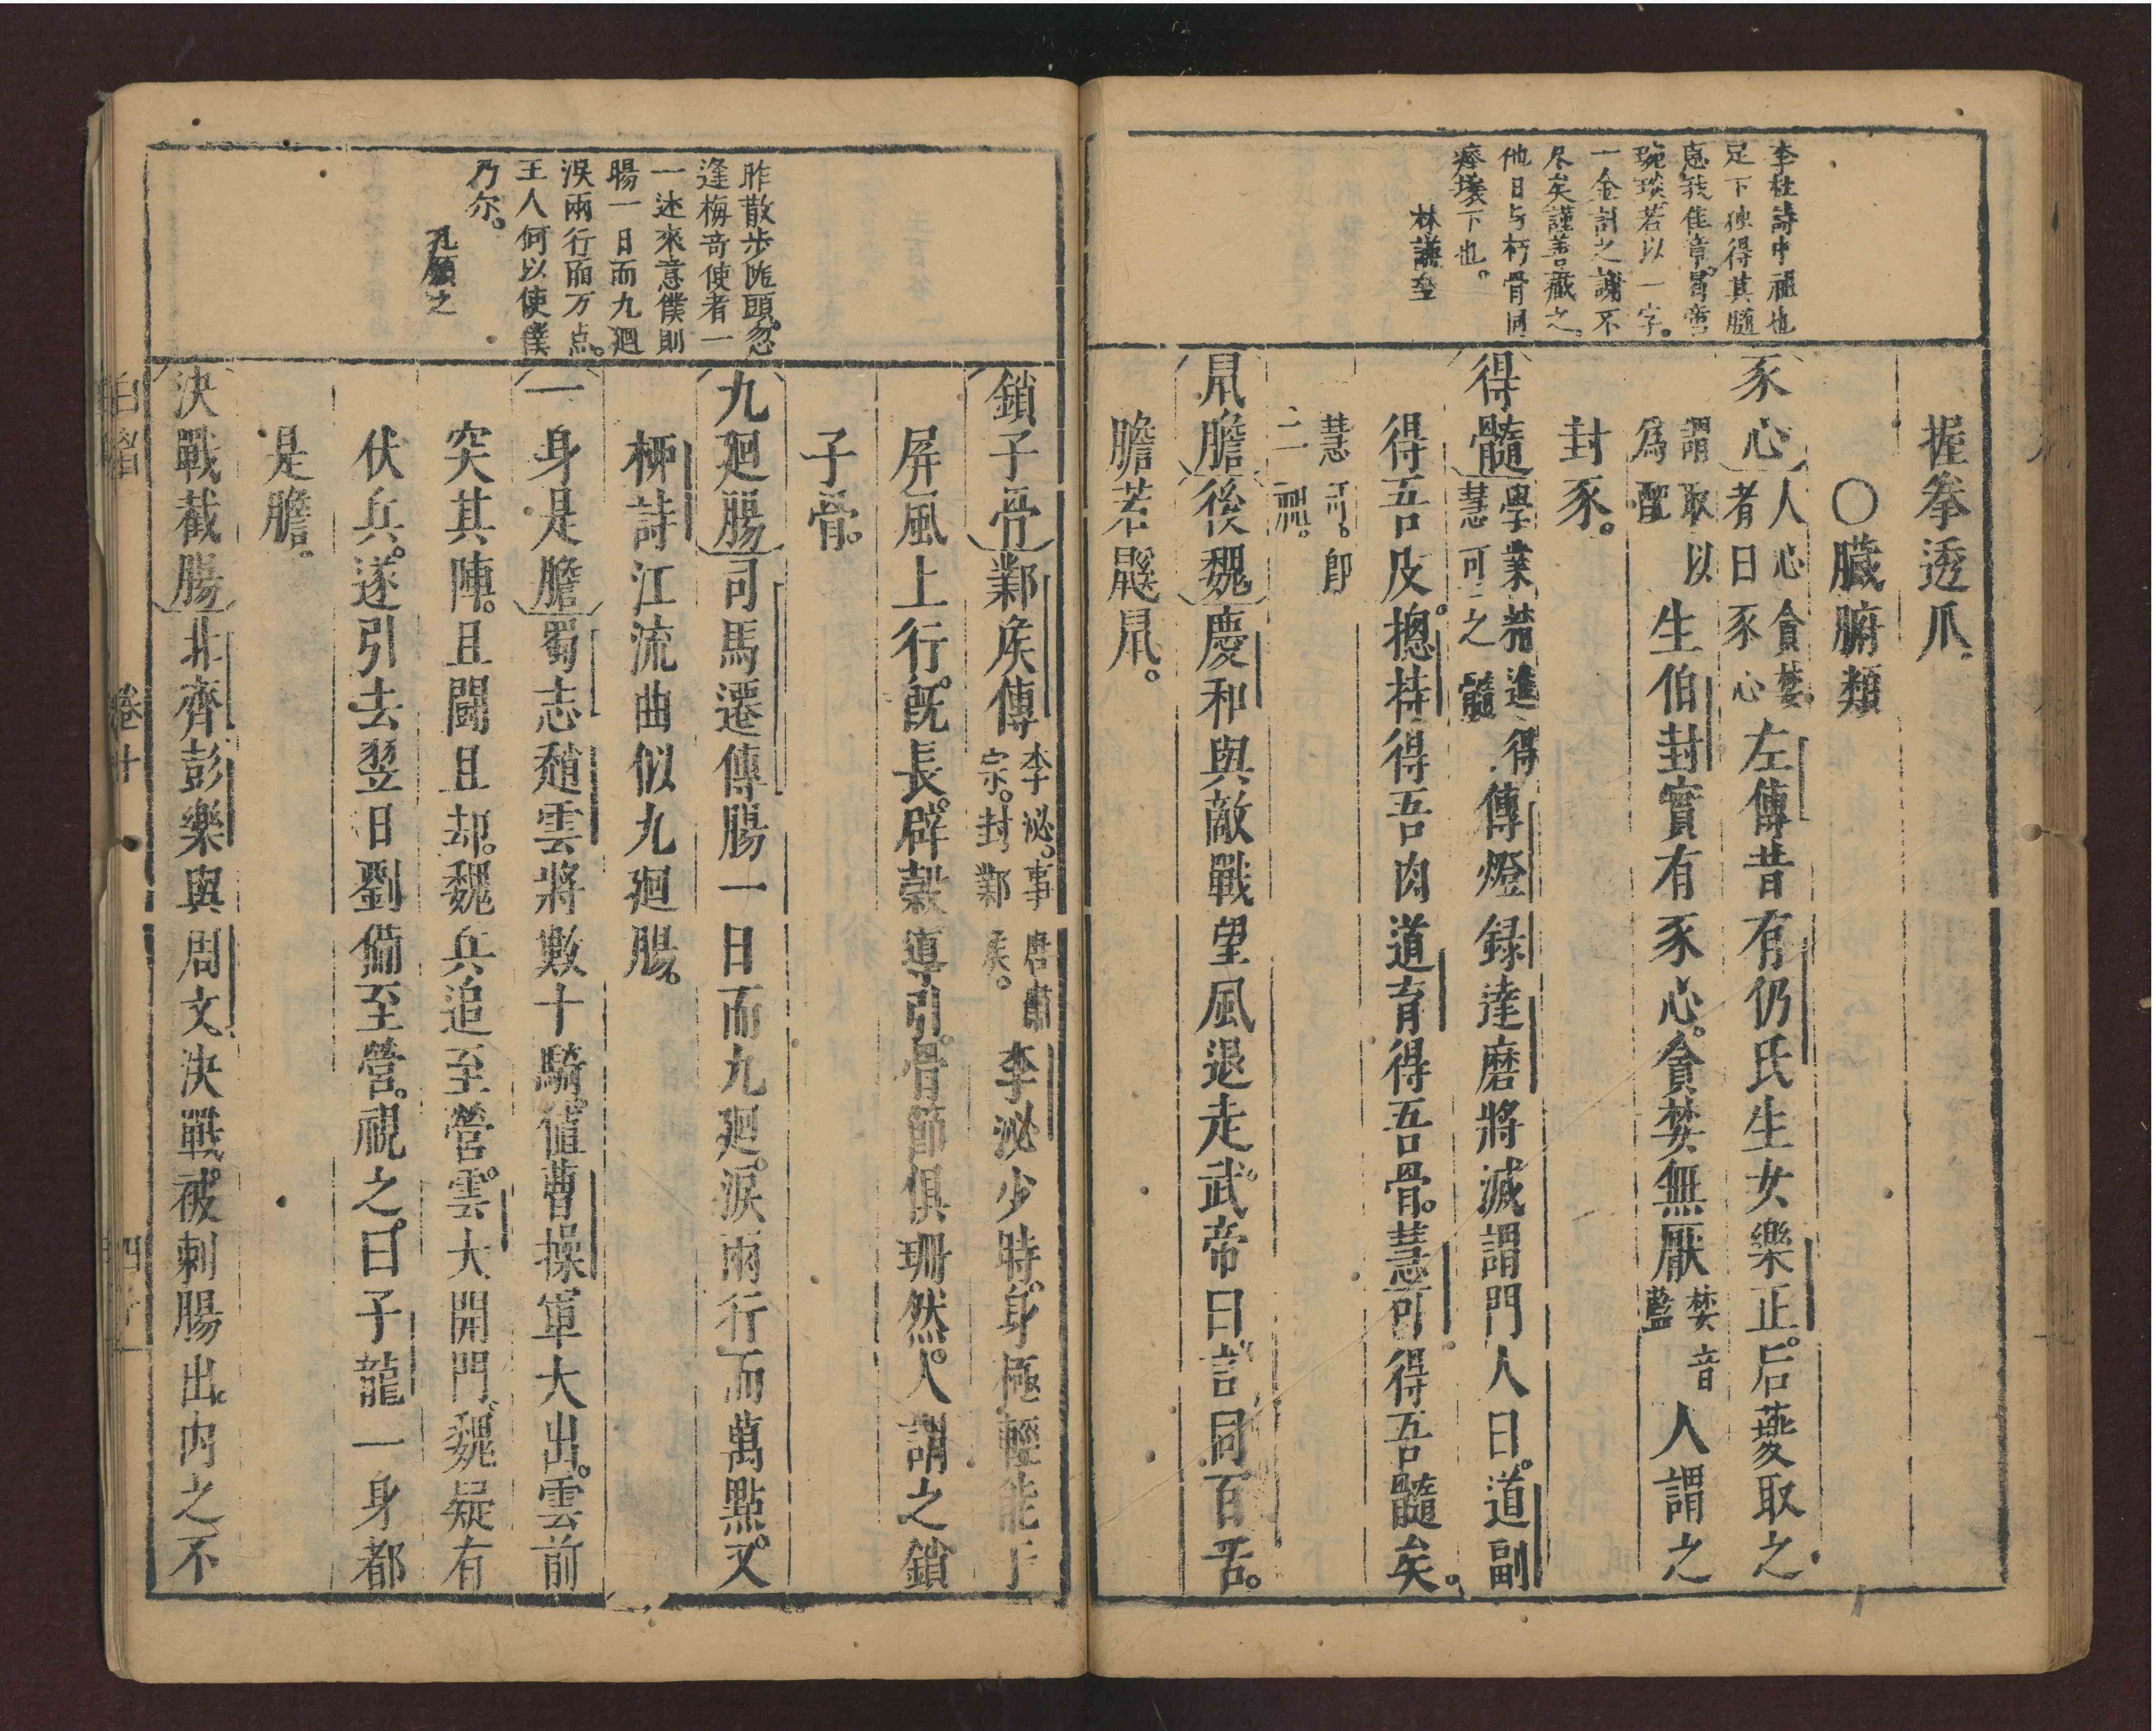 李杜詩中祖也
足下獨得其髓
惠我佳章冐啻
琬琰若以一字
一金討之謝不
尽矣謹善藏之
他日与朽骨同
瘞壤下也
林謙至
握拳透爪
○臟腑類
豕心人心貪婪者曰豕心左傳昔有仍氏生女樂正后夔取之
謂取以爲配生伯封實有豕心貪婪無厭婪音藍人謂之
封豕
得髓學業精進得慧可之髓傳燈録達磨將滅謂門人曰道副
得吾皮摠持得吾肉道育得吾骨慧可得吾髓矣
慧可即二祖
鼠膽後魏慶和與敵戰望風退走武帝曰言同百舌
膽若鼷鼠
昨散步陇頭忽
逢梅竒使者一
一述來意僕則
腸一日而九廻
淚兩行而万点
王人何以使僕
乃尔
孔顒之
鎖子骨鄴矦傳李泌事唐肅宗封鄴矦李泌少時身極輕能于
屏風上行旣長辟穀導引骨節俱珊然人謂之鎖
子骨
九廻腸司馬遷傳腸一日而九廻淚兩行而萬點又
柳詩江流曲似九廻腸
一身是膽蜀志趙雲將數十騎値曹操軍大出雲前
突其陣且鬪且却魏兵追至營雲大開門魏疑有
伏兵遂引去翌日劉備至營視之曰子龍一身都
是膽
決戰截腸北齊彭樂與周文決戰被刺腸出内之不
白眉
卷十
四十一